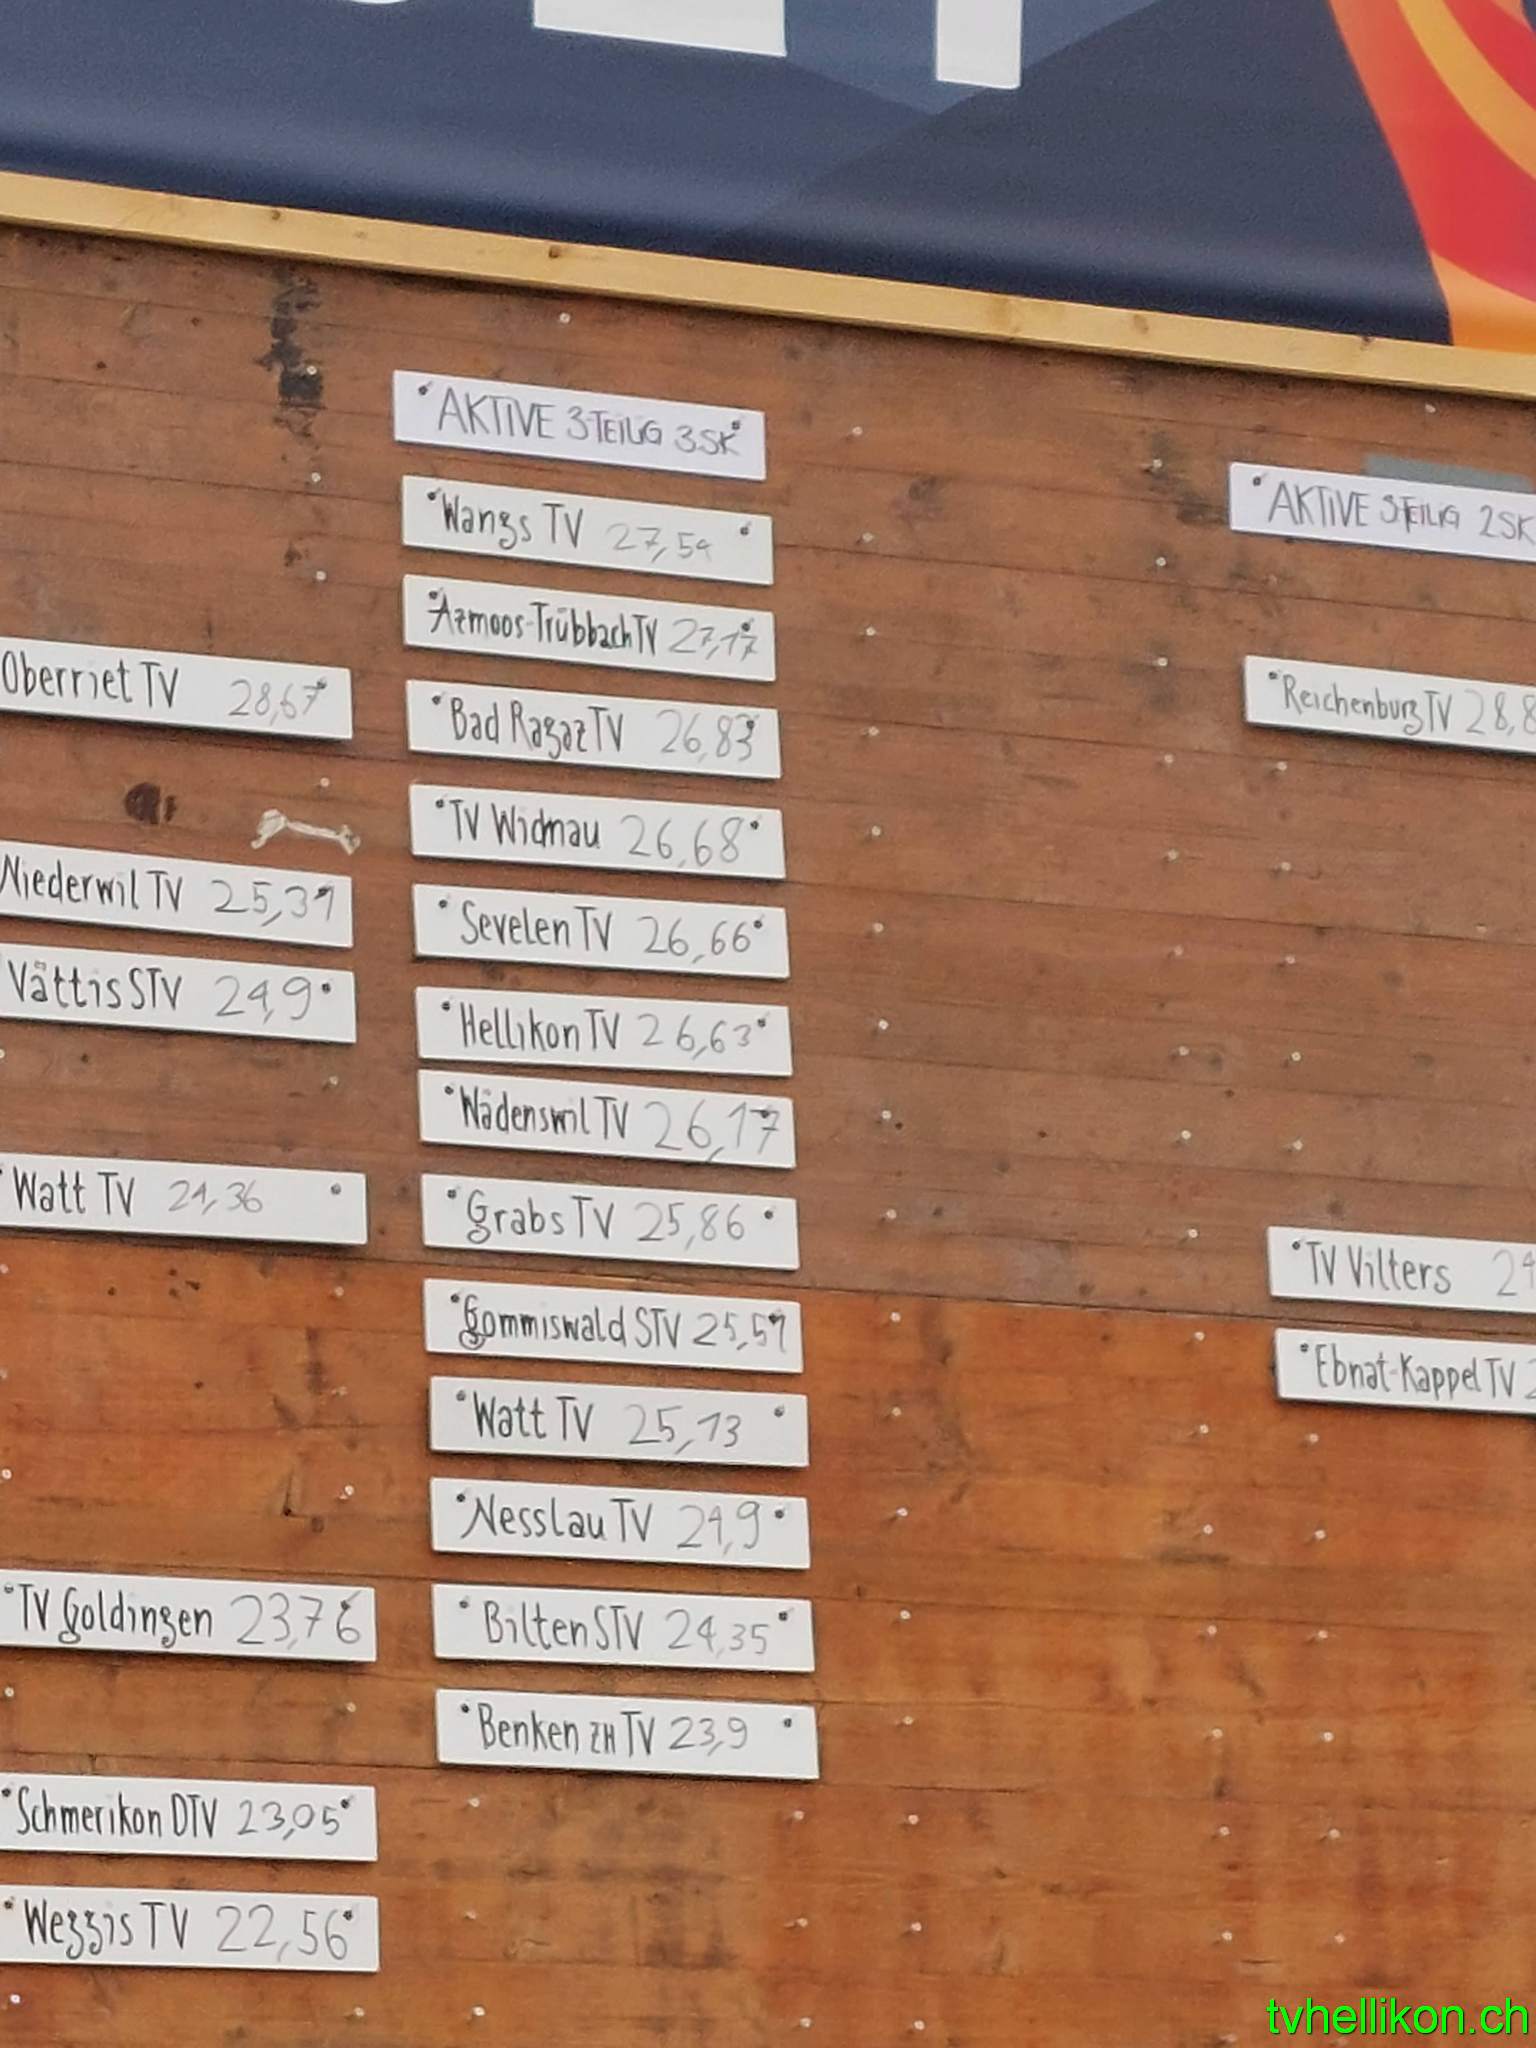 Oberriet TV 28,67
Niederwil TV 25,31
Vättis STV 24,9
Watt TV 24,36
TV Goldingen 23,76
Schmerikon DTV 23,05
Weggis TV 22,56
AKTIVE 3-TEILIG 3SK
Wangs TV 27,54
Azmoos-Trübbach TV 27,17
Bad Ragaz TV 26,83
TV Widnau 26,68
Sevelen TV 26,66
Hellikon TV 26,63
Wädenswil TV 26,17
Grabs TV 25,86
Gommiswald STV 25,51
Watt TV 25,13
Nesslau TV 24,9
Bilten STV 24,35
Benken ZH TV 23,9
AKTIVE 3-TEILIG 2SK
Reichenburg TV 28,8
TV Vilters 24
Ebnat-Kappel TV
tvhellikon.ch